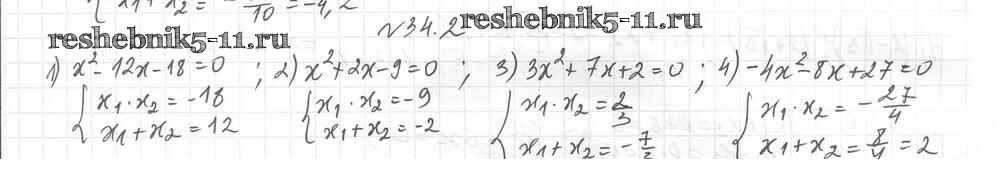 { x₁ + x₂ = - /10 = -4,2
№34.2 reshebnik5-11.ru
reshebnik5-11.ru
1) x² - 12x - 18 = 0 ; 2) x² + 2x - 9 = 0 ; 3) 3x² + 7x + 2 = 0 ; 4) -4x² - 8x + 27 = 0
{ x₁ · x₂ = -18 { x₁ · x₂ = -9 { x₁ · x₂ = 2/3 { x₁ · x₂ = - 27/4
x₁ + x₂ = 12 x₁ + x₂ = -2 x₁ + x₂ = - 7/3 x₁ + x₂ = 8/4 = 2